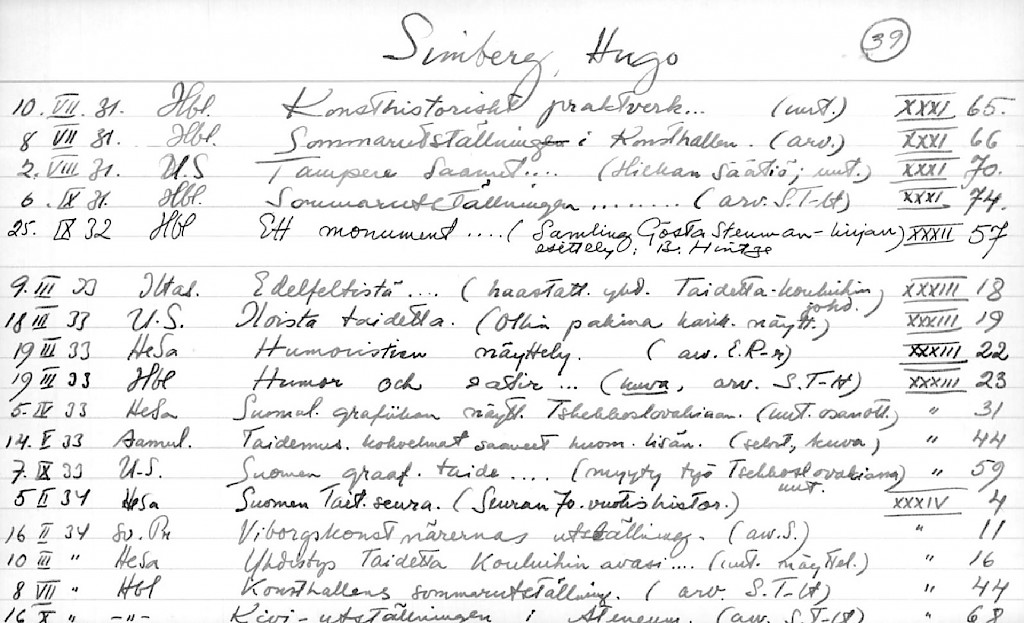 Simberg, Hugo 39
10. VII. 31. Hbl. Konsthistoriskt praktverk... (uut.) XXXI 65.
8 VII 31. Hbl. Sommarutställning i Konsthallen. (arv.) XXXI 66
2. VIII 31. U.S Tampere saanut.... (Hiekan säätiö; uut.) XXXI 70.
6. IX 31. Hbl. Sommarutställningen ........ (arv. S.T-H) XXXI 74.
25. IX 32 Hbl Ett monument .... (Samling Gösta Stenman-kirjan) XXXII 57
esittely; B. Hintze
9. III 33 Iltas. Edelfeltistä .... (haastatt. yhd. Taidetta-kouluihin XXXIII 18
johd.)
18 III 33 U.S. Iloista taidetta. (Ollin pakina karik. näytt.) XXXIII 19
19 III 33 HeSa Humoristien näyttely. (arv. E.R-r) XXXIII 22
19 III 33 Hbl Humor och satir ... (kuva, arv. S.T-H) XXXIII 23
5. IV 33 HeSa Suomal. grafiikan näytt. Tshekkoslovakiaan. (uut. osanott.) " 31
14. V 33 Aamul. Taidemus. kokoelmat saaneet huom. lisän. (selost., kuva) " 44
7. IX 33 U.S. Suomen graaf. taide .... (myyty työ Tsekkoslovakiana) " 59
uut.
5 II 34 HeSa Suomen Tait. seura. (Seuran 70-vuotishistor.) XXXIV 4
16 II 34 Sv. Pr Viborgskonstnärernas utställning. (arv. S.) " 11
10 III " HeSa Yhdistys Taidetta Kouluihin avasi.... (uut. näyttel.) " 16
8 VII " Hbl Konsthallens sommarutställning. (arv. S.T-H) " 44
16 X " -"- Kivi-utställningen i Ateneum. (arv. S.T-H) " 68